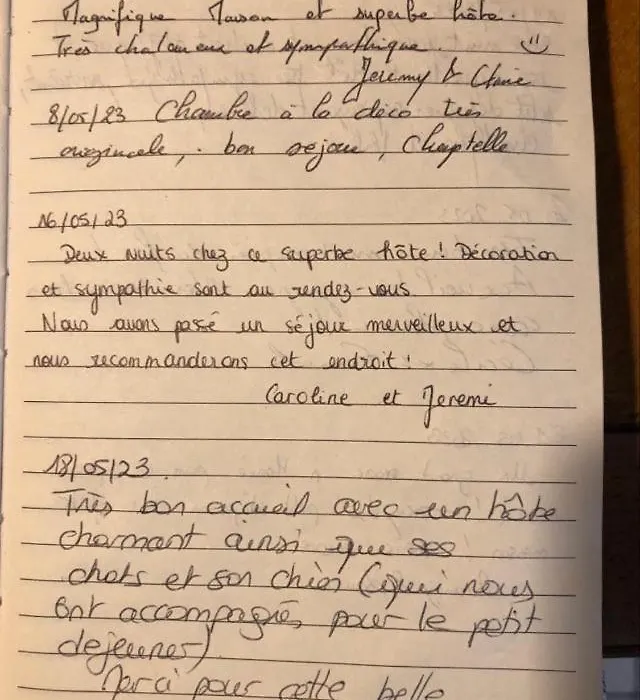 Magnifique Maison et superbe hôte.
Très chaleureux et sympathique.
Jeremy & Claire
8/05/23 Chambre à la déco très
originale, bon sejour, Chaptelle
16/05/23
Deux nuits chez ce superbe hôte ! Décoration
et sympathie sont au rendez-vous
Nous avons passé un séjour merveilleux et
nous recommanderons cet endroit !
Caroline et Jeremi
18/05/23.
Très bon accueil avec un hôte
charmant ainsi que ses
chats et son chien (qui nous
ont accompagnés pour le petit
dejeuner)
Merci pour cette belle